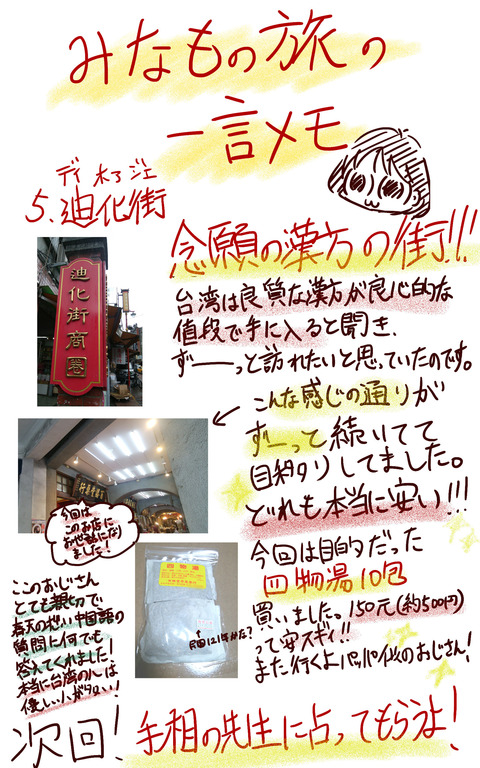 みなもの旅の
一言メモ
ディ ホア ジェ
5.迪化街
迪化街商圈
念願の漢方の街!!!
台湾は良質な漢方が良心的な
値段で手に入ると聞き、
ずーーっと訪れたいと思っていたのです。
こんな感じの通りが
ずーっと続いてて
目移りしてました。
どれも本当に安い!!!
今回は
このお店に
お世話になり
ました!
今回は目的だった
四物湯10包
買いました。150元(約500円)
って安スギ!!
また行くよパッパイ代のおじさん!
四物湯
ここのおじさん
とても親切で、
質問に何でも
答えてくれました!
本当に台湾の人は
優しい人が多い!
次回!
手相の先生に占ってもらうよ!